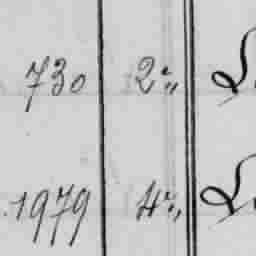 730 2.„
1979 4.„